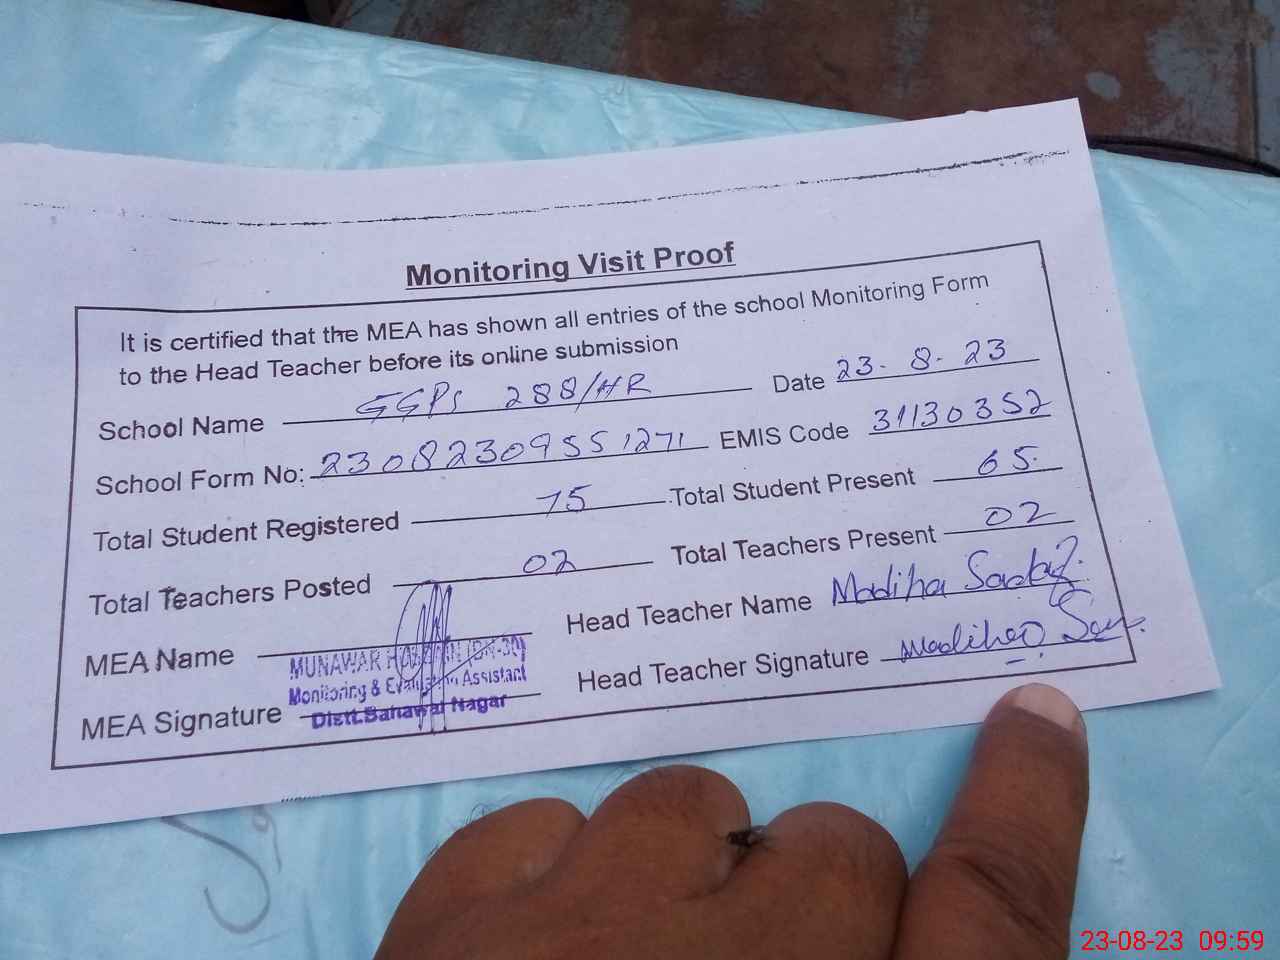 Monitoring Visit Proof
It is certified that the MEA has shown all entries of the school Monitoring Form
to the Head Teacher before its online submission
School Name GGPS 288/HR Date 23-8-23
School Form No: 23082309551271 EMIS Code 31130352
Total Student Registered 75 Total Student Present 65
Total Teachers Posted 02 Total Teachers Present 02
MEA Name Head Teacher Name Madiha Sadaf
MUNAWAR HUSSAIN (BN-30)
Monitoring & Evaluation Assistant
Distt. Bahawal Nagar
MEA Signature Head Teacher Signature Madiha
23-08-23 09:59